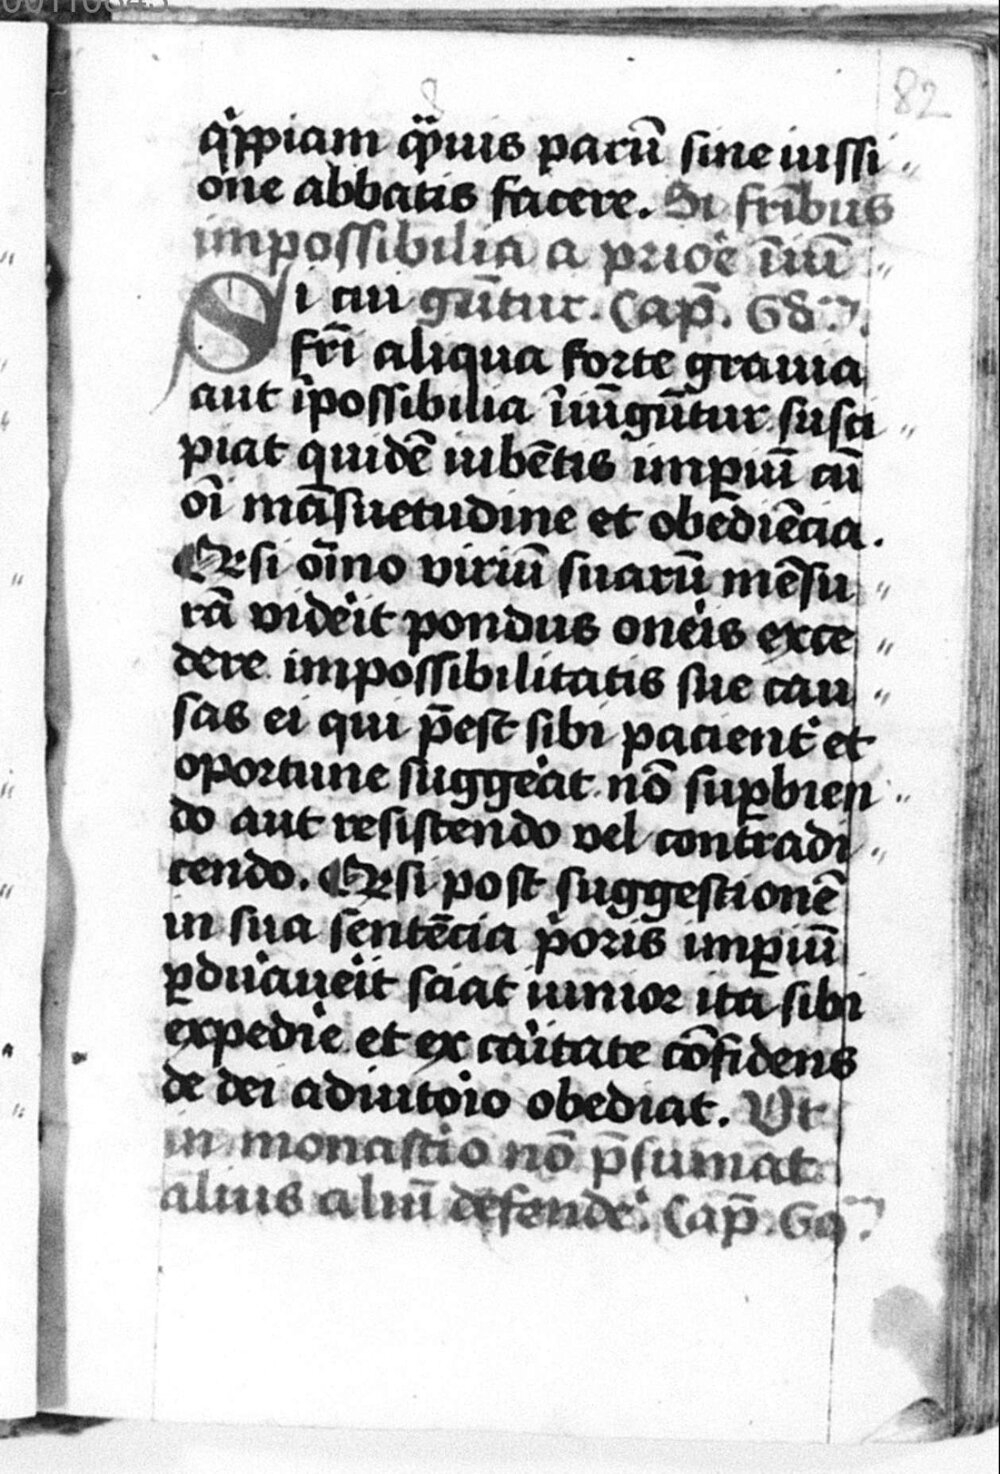 82
q̇ppiam q̈uis paruū sine iussi
one abbatis facere. Si fr̄ibus
impossibilia a priore̾ īiū
Si cui gūtur. Cap̄. 68ᵐ.
fr̄i aliqua forte grauia
aut īpossibilia īiūgūtur susci
piat quidē iubētis imꝑiū cū
oī māsuetudine et obediēcia.
Et si oīno viriū suarū mēsu
rā vide̾it pondus one̾is exce
dere impossibilitatis sue cau
sas ei qui p̄est sibi pacient̾ et
oportune sugge̾at nō suꝑbien
do aut resistendo vel contradi
cendo. Et si post suggestionē
in sua sentēcia p̍oris imꝑiū
ꝑdu̾aue̾it sciat iunior ita sibi
expedi̾e et ex ca̾itate cōfidens
de dei adiuto̍io obediat. Vt
in monast̾io nō p̄sumat
alius aliū defende̾. Cap̄. 69ᵐ.